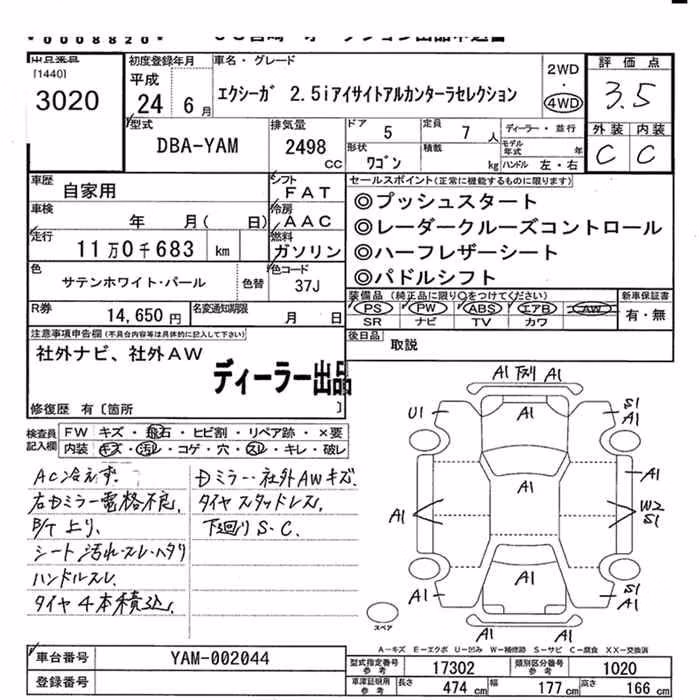 0008820
出品番号
[1440]
3020
初度登録年月
平成
24 年 6 月
車名・グレード
エクシーガ 2.5iアイサイトアルカンターラセレクション
2WD
・
4WD
評価点
3.5
外装 内装
C C
型式
DBA-YAM
排気量
2498
CC
ドア 5
定員 7 人
ディーラー・並行
モデル年式 年
形状 ワゴン
積載 kg
ハンドル 左・右
車歴
自家用
シフト
FAT
車検
年 月( 日)
冷房
AAC
走行
11万0千683 km
燃料
ガソリン
色
サテンホワイト・パール
色替
色コード
37J
R券
14,650 円
名変通知期限
月 日
セールスポイント(正常に機能するものに限ります)
◎プッシュスタート
◎レーダークルーズコントロール
◎ハーフレザーシート
◎パドルシフト
装備品 (純正品に限り○をつけてください)
PS PW ABS エアB AW
SR ナビ TV カワ
新車保証書
有・無
後日品
取説
注意事項申告欄(不具合内容等は具体的に記入して下さい)
社外ナビ、社外AW
ディーラー出品
修復歴 有〔箇所 〕
検査員記入欄
FW キズ・飛石・ヒビ割・リペア跡・×要
内装 キズ・汚レ・コゲ・穴・スレ・キレ・破レ
AC冷えず.
右Dミラー電格不良.
B/T上り.
シート汚れ・スレ・ヘタリ
ハンドルスレ.
タイヤ4本積込.
Dミラー・社外AWキズ.
タイヤスタッドレス.
下廻りS・C.
A1 下刈り A1
U1
A1
S1
A1
A1
A1
A1
W2
S1
A1
A1
S1
A1
A1
スペア
A-キズ E-エクボ U-凹み W-補修跡 S-サビ C-腐食 XX-交換済
車台番号
YAM-002044
登録番号
型式指定番号 参考
17302
類別区分番号 参考
1020
車庫証明用 参考
長さ 474 cm
幅 177 cm
高さ 166 cm